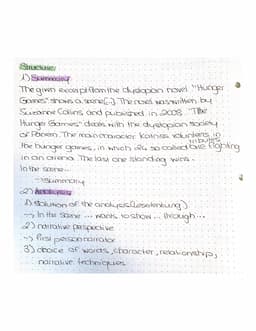 Structure:
1) Summary
The given excerpt from the dystopian novel "Hunger
Games" shows a scene [...]. The novel was written by
Suzanne Collins and published in 2008. "The
Hunger Games" deals with the dystopian society
of Panem. The main character Katniss volunteers in
the hunger games, in which 24 so called tributes are fighting
in an arena. The last one standing wins.
In the scene...
→ Summary
2) Analysis
1) of the analysis (Leseleitung)
→ In the scene ... wants to show... through...
2) narrative perspective
→ first person narrator
3) choice of words, character, relationship,
narrative techniques